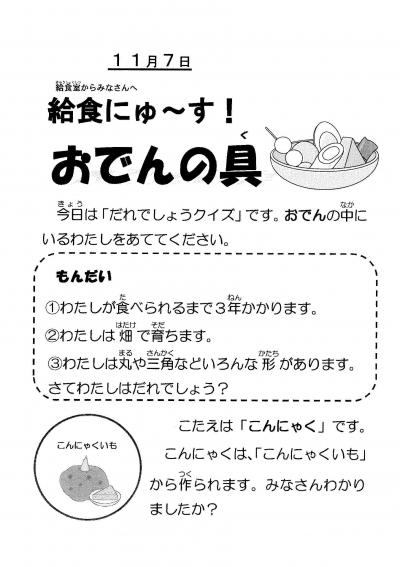 11月7日
給食室からみなさんへ
給食にゅ〜す！
おでんの具
今日は「だれでしょうクイズ」です。おでんの中に
いるわたしをあててください。
もんだい
①わたしが食べられるまで３年かかります。
②わたしは畑で育ちます。
③わたしは丸や三角などいろんな形があります。
さてわたしはだれでしょう？
こたえは「こんにゃく」です。
こんにゃくいも
こんにゃくは、「こんにゃくいも」
から作られます。みなさんわかり
ましたか？